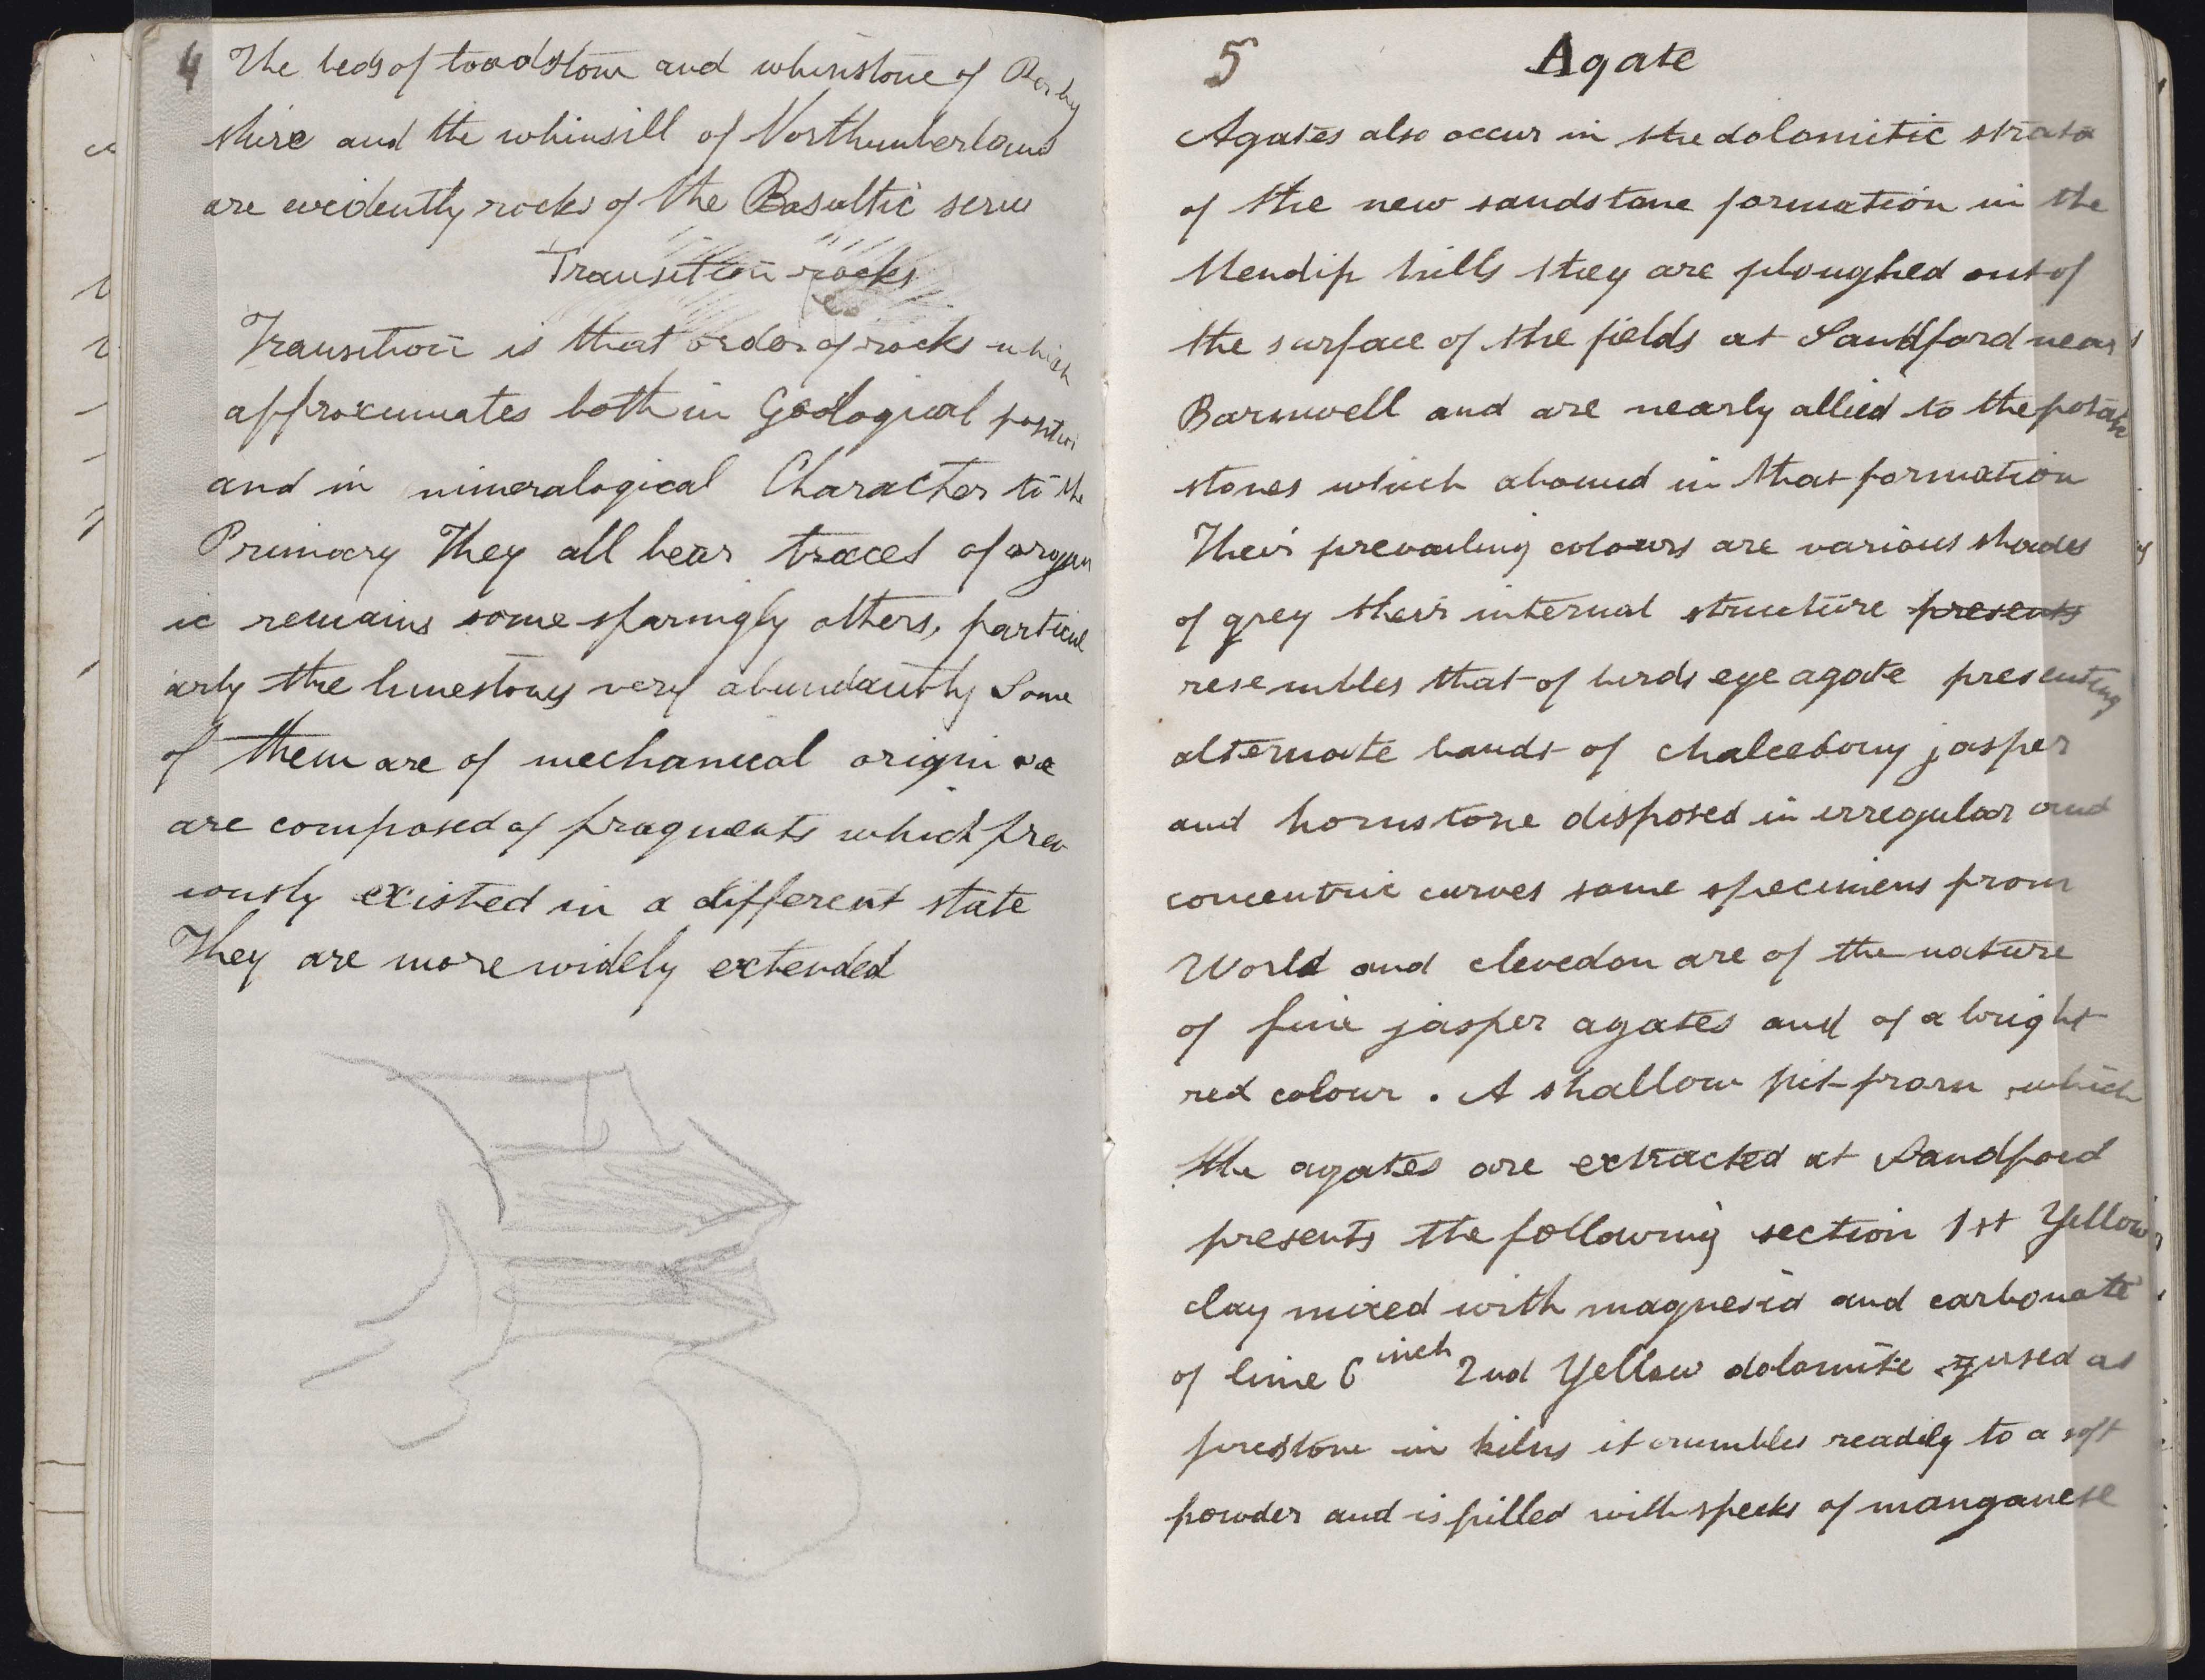 4
The beds of toadstone and whinstone of Derby
shire and the whinsill of Northumberland
are evidently rocks of the Basaltic series
Transition rocks
Transition is that order of rocks which
approximates both in Geological position
and in mineralogical Character to the
Primary They all bear traces of organ
ic remains some sparingly others, particul
arly the limestones very abundantly Some
of them are of mechanical origin
are composed of fragments which prev
iously existed in a different state
They are more widely extended
5 Agate
Agates also occur in the dolomitic strata
of the new sandstone formation in the
Mendip hills they are ploughed out of
the surface of the fields at Sandford near
Barnwell and are nearly allied to the potatoe
stones which abound in that formation
Their prevailing colours are various shades
of grey their internal structure presents
resembles that of birds eye agate presenting
alternate bands of chalcedony jasper
and hornstone disposed in irregular and
concentric curves some specimens from
World and clevedon are of the nature
of fine jasper agates and of a bright
red colour . A shallow pit from which
the agates are extracted at Sandford
presents the following section 1st Yellow
clay mixed with magnesia and carbonate
of lime 6 inch 2nd Yellow dolomite used as
firestone in kilns it crumbles readily to a soft
powder and is filled with specks of manganese